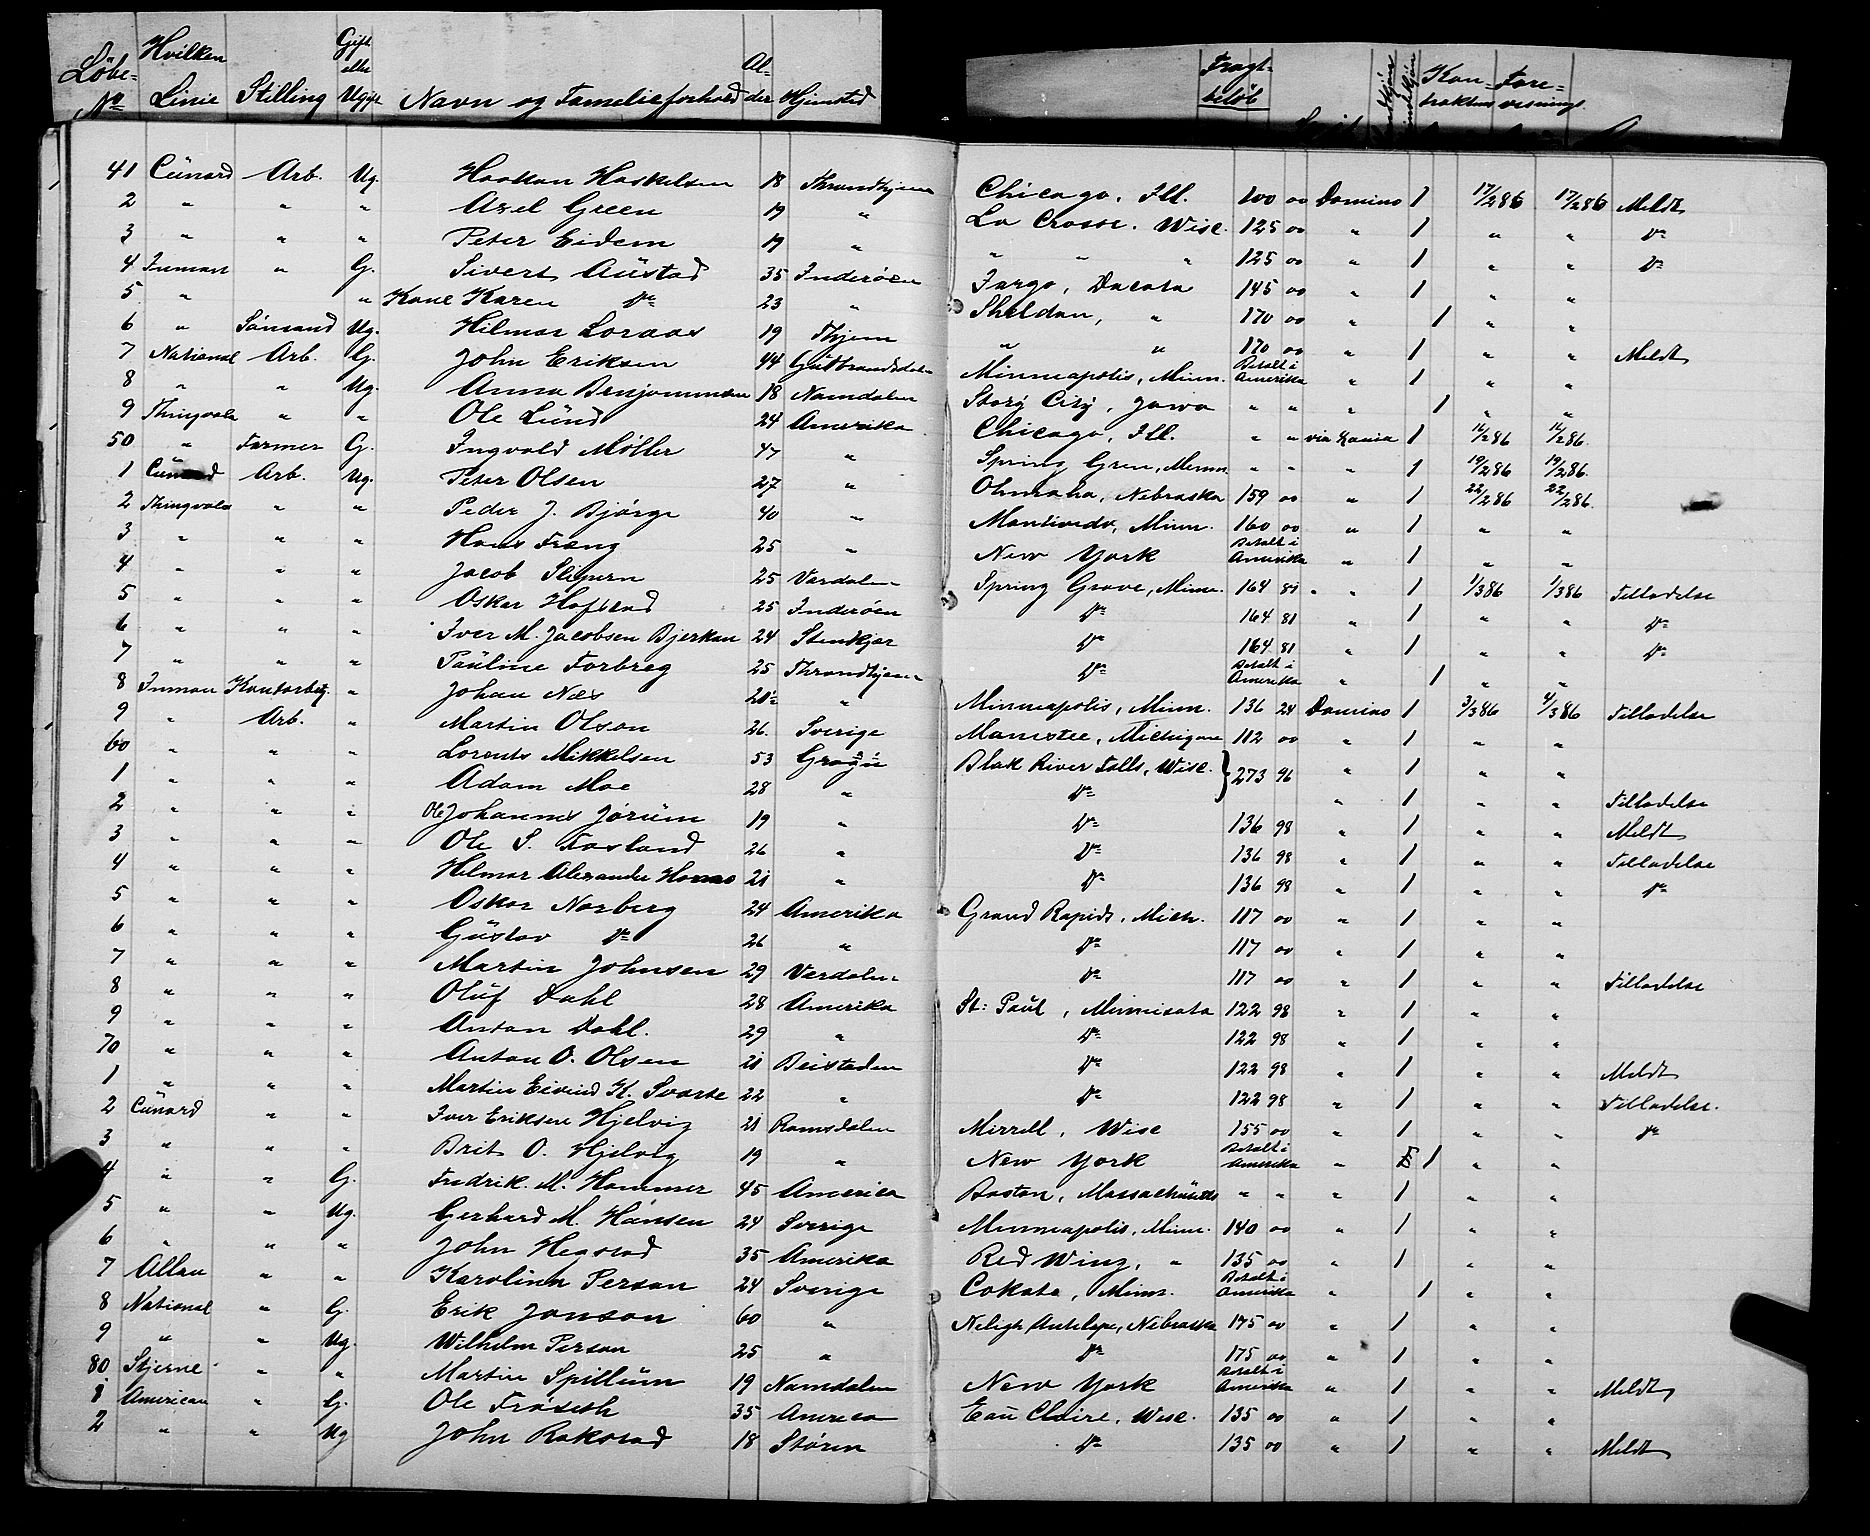 Löbe- No Hvilken Linie Stilling Gift eller Ugift Navn og Familieforhold Alder Hjemsted Fragt-beløb Kontraktens Forevisnings
41 Cunard Arb. Ug. Haakon Haskelsen 18 Throndhjem Chicago, Ill. 100 00 Domino 1 17/2 86 17/2 86 Meldt
2 " " " Axel Green 19 " La Crosse. Wisc. 125 00 " 1 " " Do
3 " " " Peter Eidem 19 " " " " 125 00 " 1 " " Do
4 Inman " G. Sivert Austad 35 Inderöen Fargo, Dacota 145 00 " 1 " "
5 " " Kone Karen Do 23 " Sheldon, " 170 00 " 1 " "
6 " Sömand Ug. Hilmar Loraas 19 Thjem " " 170 00 " 1 " " Meldt
7 National Arb. G. John Eriksen 44 Gutbrandsdalen Minneapolis, Minn. Betalt i Amerika " 1 " "
8 " " Ug. Anna Benjaminsen 18 Namdalen Story City, Jowa " " " 1 " "
9 Thingvala " " Ole Lund 24 Amerika Chicago, Ill. " " via Xania 1 /2 86 /2 86.
50 " Farmer G. Ingvald Møller 47 " Spring Gren, Menn. " " " 1 19/2 86 19/2 86.
1 Cunard Arb. Ug. Peter Olsen 27 " Ohmaha, Nebraska 159 00 " 1 22/2 86 22/2 86.
2 Thingvala " " Peder J. Bjørge 40 " Montivedo, Minn. 160 00 " 1 " "
3 " " " Hans Fræng 25 " New York Betalt i Amerika " 1 " "
4 " " " Jacob 25 Værdalen Spring Grove, Minn. 164 81 " " 1 1/3 86 1/3 86 Tilladelse
5 " " " Oskar Hofstad 25 Inderöen Do 164 81 " 1 " " Do
6 " " " Iver M. Jacobsen Bjerkan 24 Stenkjær Do 164 81 " 1 " " Do
7 " " " Pauline Forbreg 25 Throndhjem Do Betalt i Amerika " 1 " "
8 Inman Kontorbetj. " Johan Næs " Minneapolis, Minn. 136 24 Domino 1 3/3 86 4/3 86 Tilladelse
9 " Arb. " Martin Olson 26. Sverige Manestee, Michigan 112 00 " 1 " "
60 " " " Lorents Mikkelsen 53 Blak River Falls, Wisc. } 273 96 " 1 " "
1 " " " Adam Moe 28 " Do " 1 " " Tilladelse
2 " " " Ole Johannes Jørum 19 " Do 136 98 " 1 " " Meldt
3 " " " Ole S. 26 " Do 136 98 " 1 " " Tilladelse
4 " " " Helmar Alexander 21 " Do 136 98 " 1 " " Do
5 " " " Oskar Norberg 24 Amerika Grand Rapids, Mich. 117 00 " 1 " "
6 " " " Gustav Do 26 " Do 117 00 " 1 " "
7 " " " Martin Johnsen 29 Værdalen Do 117 00 " 1 " " Tilladelse
8 " " " Oluf Dahl 28 Amerika St: Paul, Minnisota 122 98 " 1 " "
9 " " " Anton Dahl. 29 " Do 122 98 " 1 " "
70 " " " Anton O. Olsen 21 Beistaden Do 122 98 " 1 " " Meldt
1 " " " Martin Eivind K. Svarte 22 " Do 122 98 " 1 " " Tilladelse.
2 Cunard " " Iver Eriksen Hjelvig 21 Romsdalen Mirrell, Wisc 155 00 " 1 " " Do
3 " " " Brit O. Hjelvig 19 " New York Betalt i Amerika " 1 " "
4 " " G. Fredrik. M. Hammer 45 America Boston, Massachusets " " " 1 " "
5 " " Ug. Gerhard M. Hansen 24 Sverige Minneapolis, Minn. 140 00 " 1 " "
6 " " " John Hegstad 35 Amerika Red Wing, " 135 00 " 1 " "
7 Allan " " Karolina Person 24 Sverige Cokato, Minn. Betalt i Amerika " 1 " "
8 National " G. Erik Jonson 60 " Neligh Antelope, Nebraska 175 00 " 1 " "
9 " " Ug. Wilhelm Person 25 " Do 175 00 " 1 " "
80 Stjerne " " Martin Spillum 19 Namdalen New York Betalt i Amerika " 1 " " Meldt
1 American " G. Ole Fröseth 35 America Eau Claire, Wisc. 135 00 " 1 " "
2 " " Ug John Rokstad 18 Stören Do 135 00 " 1 " " Meldt